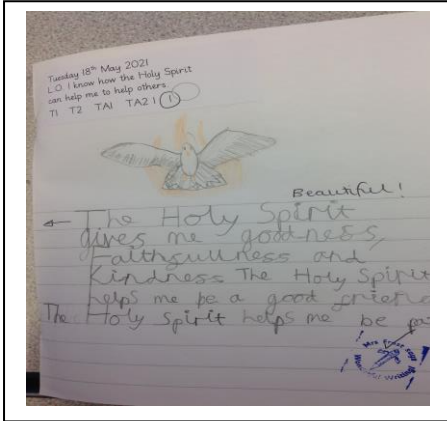 Tuesday 18th May 2021
L.O. I know how the Holy Spirit
can help me to help others.
T1 T2 TA1 TA2 I I
Beautiful!
The Holy Spirit
gives me goodness,
Faithfullness and
Kindness The Holy Spirit
helps me be a good
The Holy Spirit helps me be
Mrs says